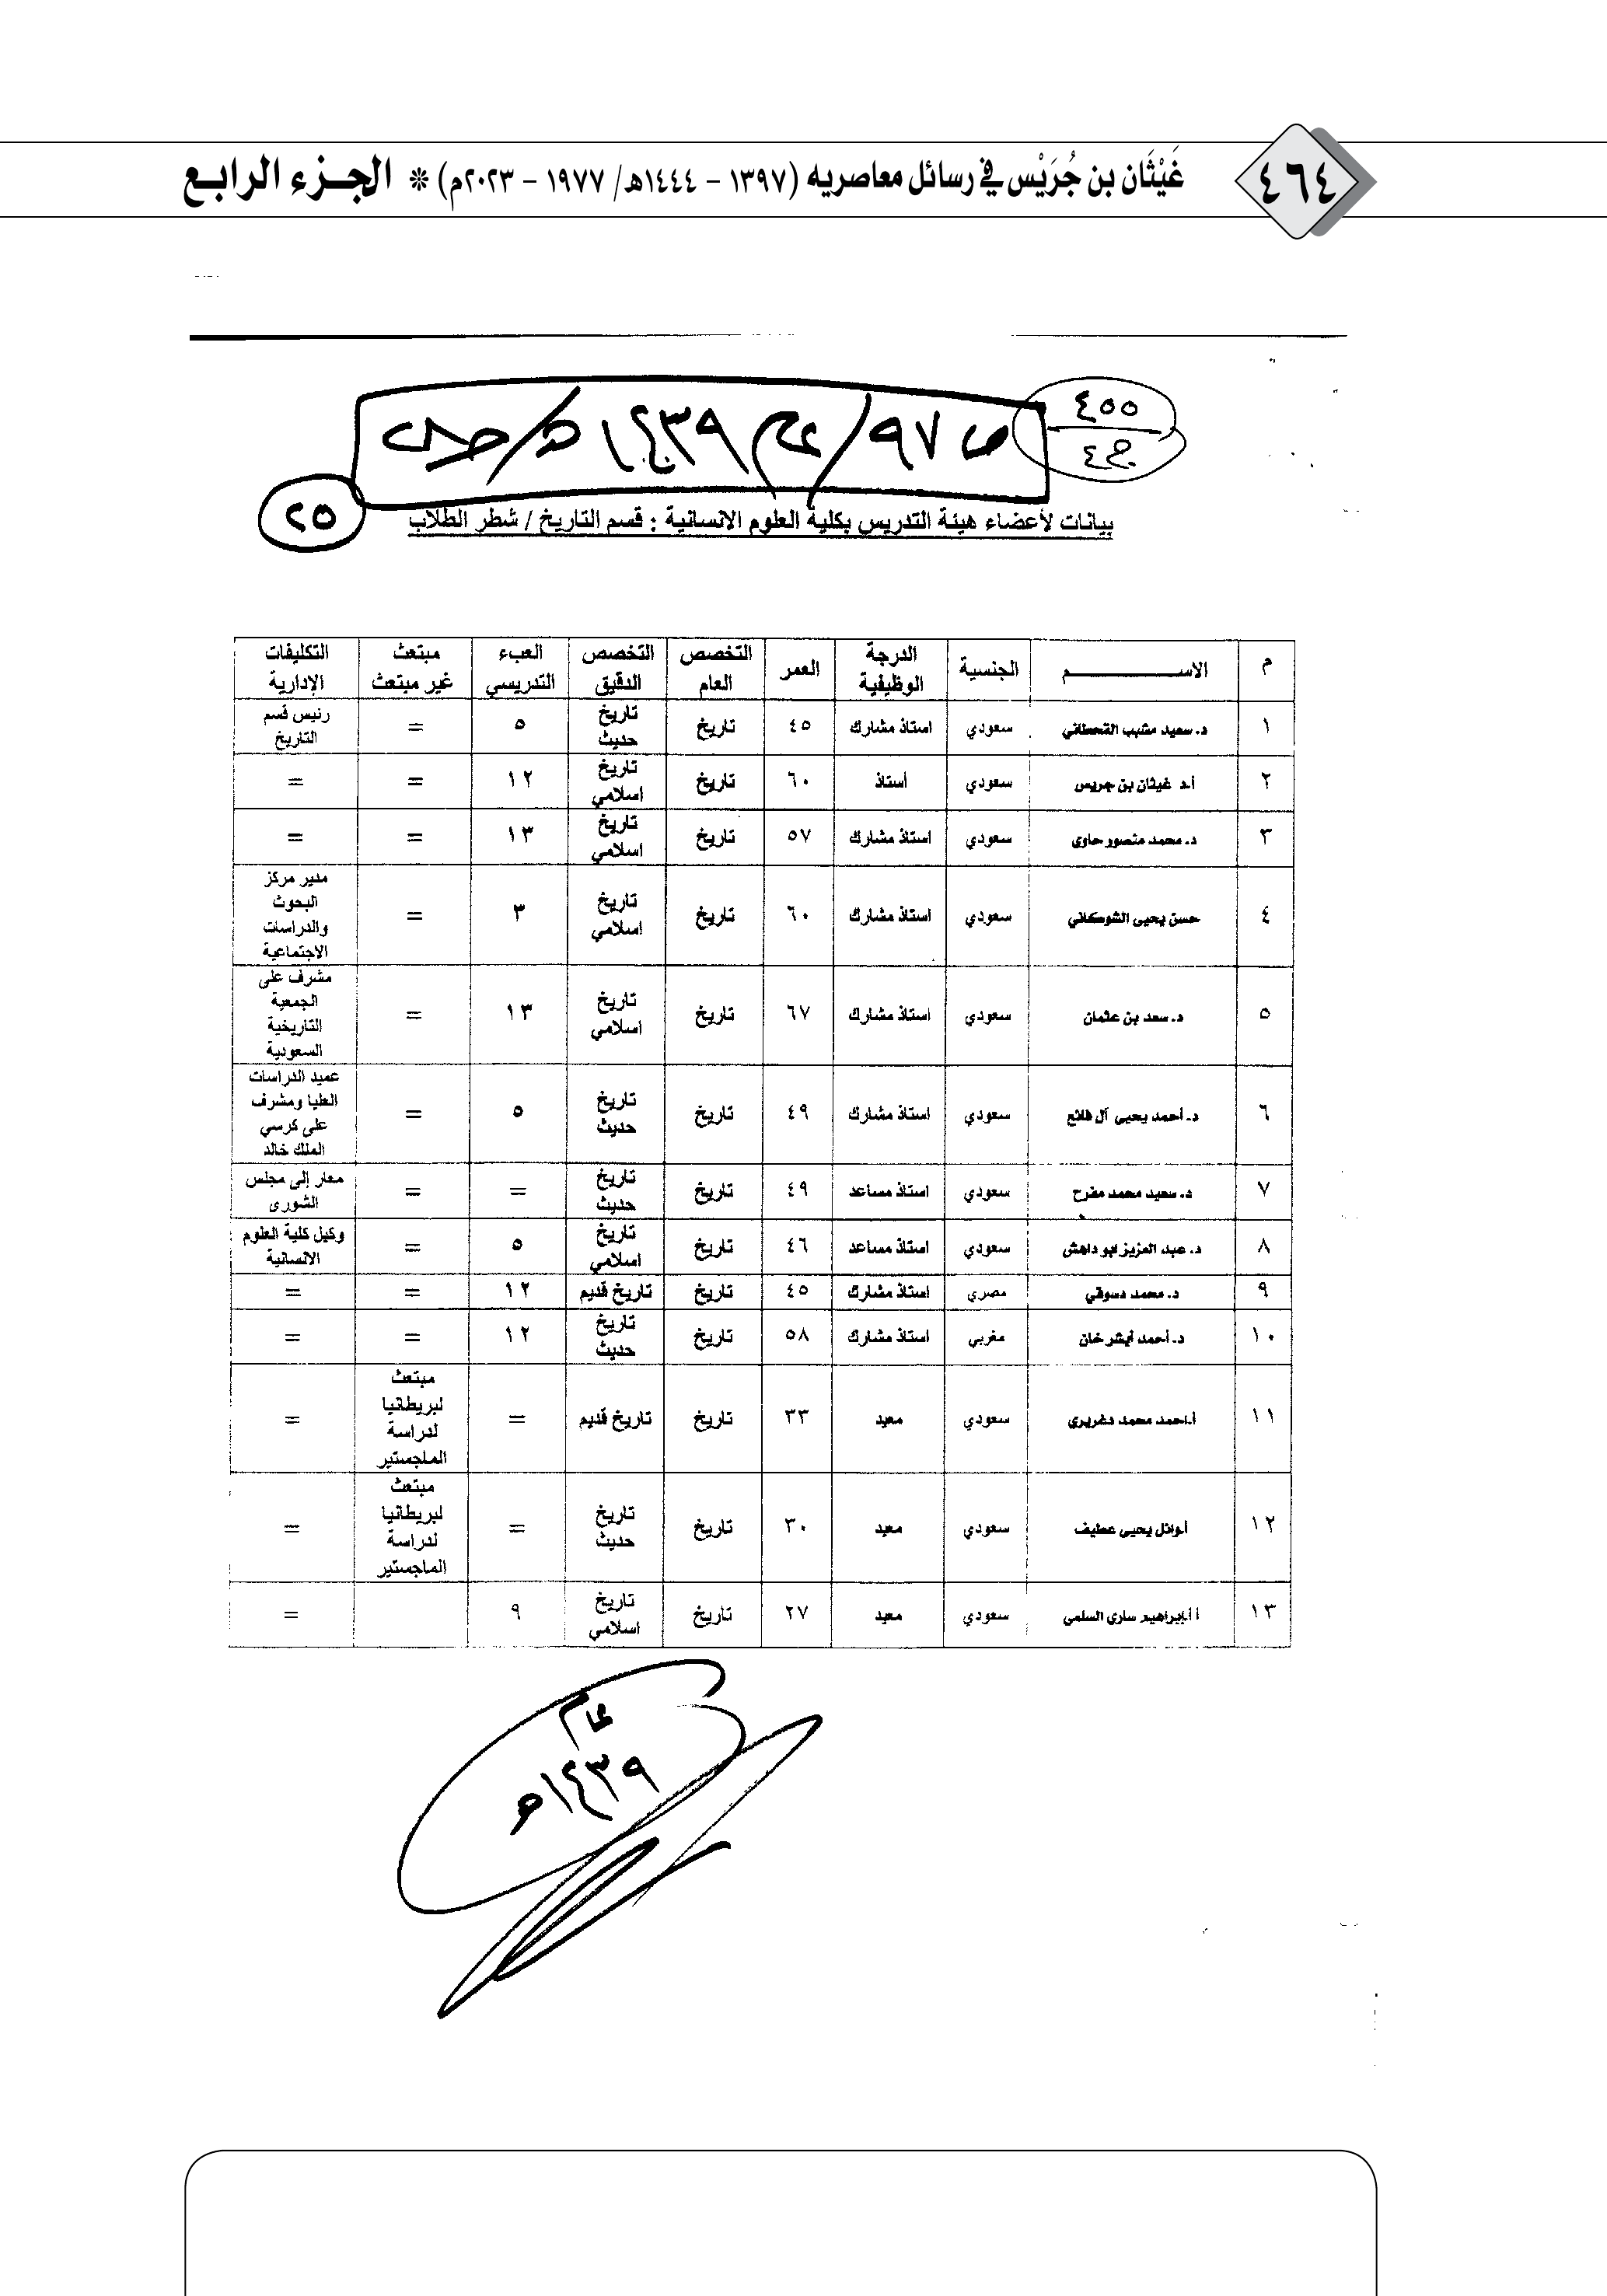 ٤٦٤
غَيْثَان بن جُرَيْس في رسائل معاصريه (١٣٩٧ - ١٤٤٤هـ/ ١٩٧٧ - ٢٠٢٣م) * الجزء الرابع
٤٥٥
ص ٩٧ / عام ١٤٣٩هـ /
٢٥
بيانات لأعضاء هيئة التدريس بكلية العلوم الانسانية : قسم التاريخ / شطر الطلاب
م الاســـــم الجنسية الدرجة الوظيفية العمر التخصص العام التخصص الدقيق العبء التدريسي مبتعث غير مبتعث التكليفات الإدارية
١ د. سعيد مشبب القحطاني سعودي استاذ مشارك ٤٥ تاريخ تاريخ حديث ٥ = رئيس قسم التاريخ
٢ أ.د غيثان بن جريس سعودي أستاذ ٦٠ تاريخ تاريخ اسلامي ١٢ = =
٣ د. محمد منصور حاوي سعودي استاذ مشارك ٥٧ تاريخ تاريخ اسلامي ١٣ = =
٤ حسن يحيى الشوكاني سعودي استاذ مشارك ٦٠ تاريخ تاريخ اسلامي ٣ = مدير مركز البحوث والدراسات الاجتماعية
٥ د. سعد بن عثمان سعودي استاذ مشارك ٦٧ تاريخ تاريخ اسلامي ١٣ = مشرف على الجمعية التاريخية السعودية
٦ د. أحمد يحيى آل فائع سعودي استاذ مشارك ٤٩ تاريخ تاريخ حديث ٥ = عميد الدراسات العليا ومشرف على كرسي الملك خالد
٧ د. سعيد محمد مفرح سعودي استاذ مساعد ٤٩ تاريخ تاريخ حديث = = معار إلى مجلس الشورى
٨ د. عبد العزيز ابو داهش سعودي استاذ مساعد ٤٦ تاريخ تاريخ اسلامي ٥ = وكيل كلية العلوم الانسانية
٩ د. محمد دسوقي مصري استاذ مشارك ٤٥ تاريخ تاريخ قديم ١٢ = =
١٠ د. أحمد أيشرخان مغربي استاذ مشارك ٥٨ تاريخ تاريخ حديث ١٢ = =
١١ أ.احمد محمد دغريري سعودي معيد ٣٣ تاريخ تاريخ قديم = مبتعث لبريطانيا لدراسة الماجستير =
١٢ أ.وائل يحيى عطيف سعودي معيد ٣٠ تاريخ تاريخ حديث = مبتعث لبريطانيا لدراسة الماجستير =
١٣ أ.إبراهيم ساري السلمي سعودي معيد ٢٧ تاريخ تاريخ اسلامي ٩ =
عام
١٤٣٩هـ